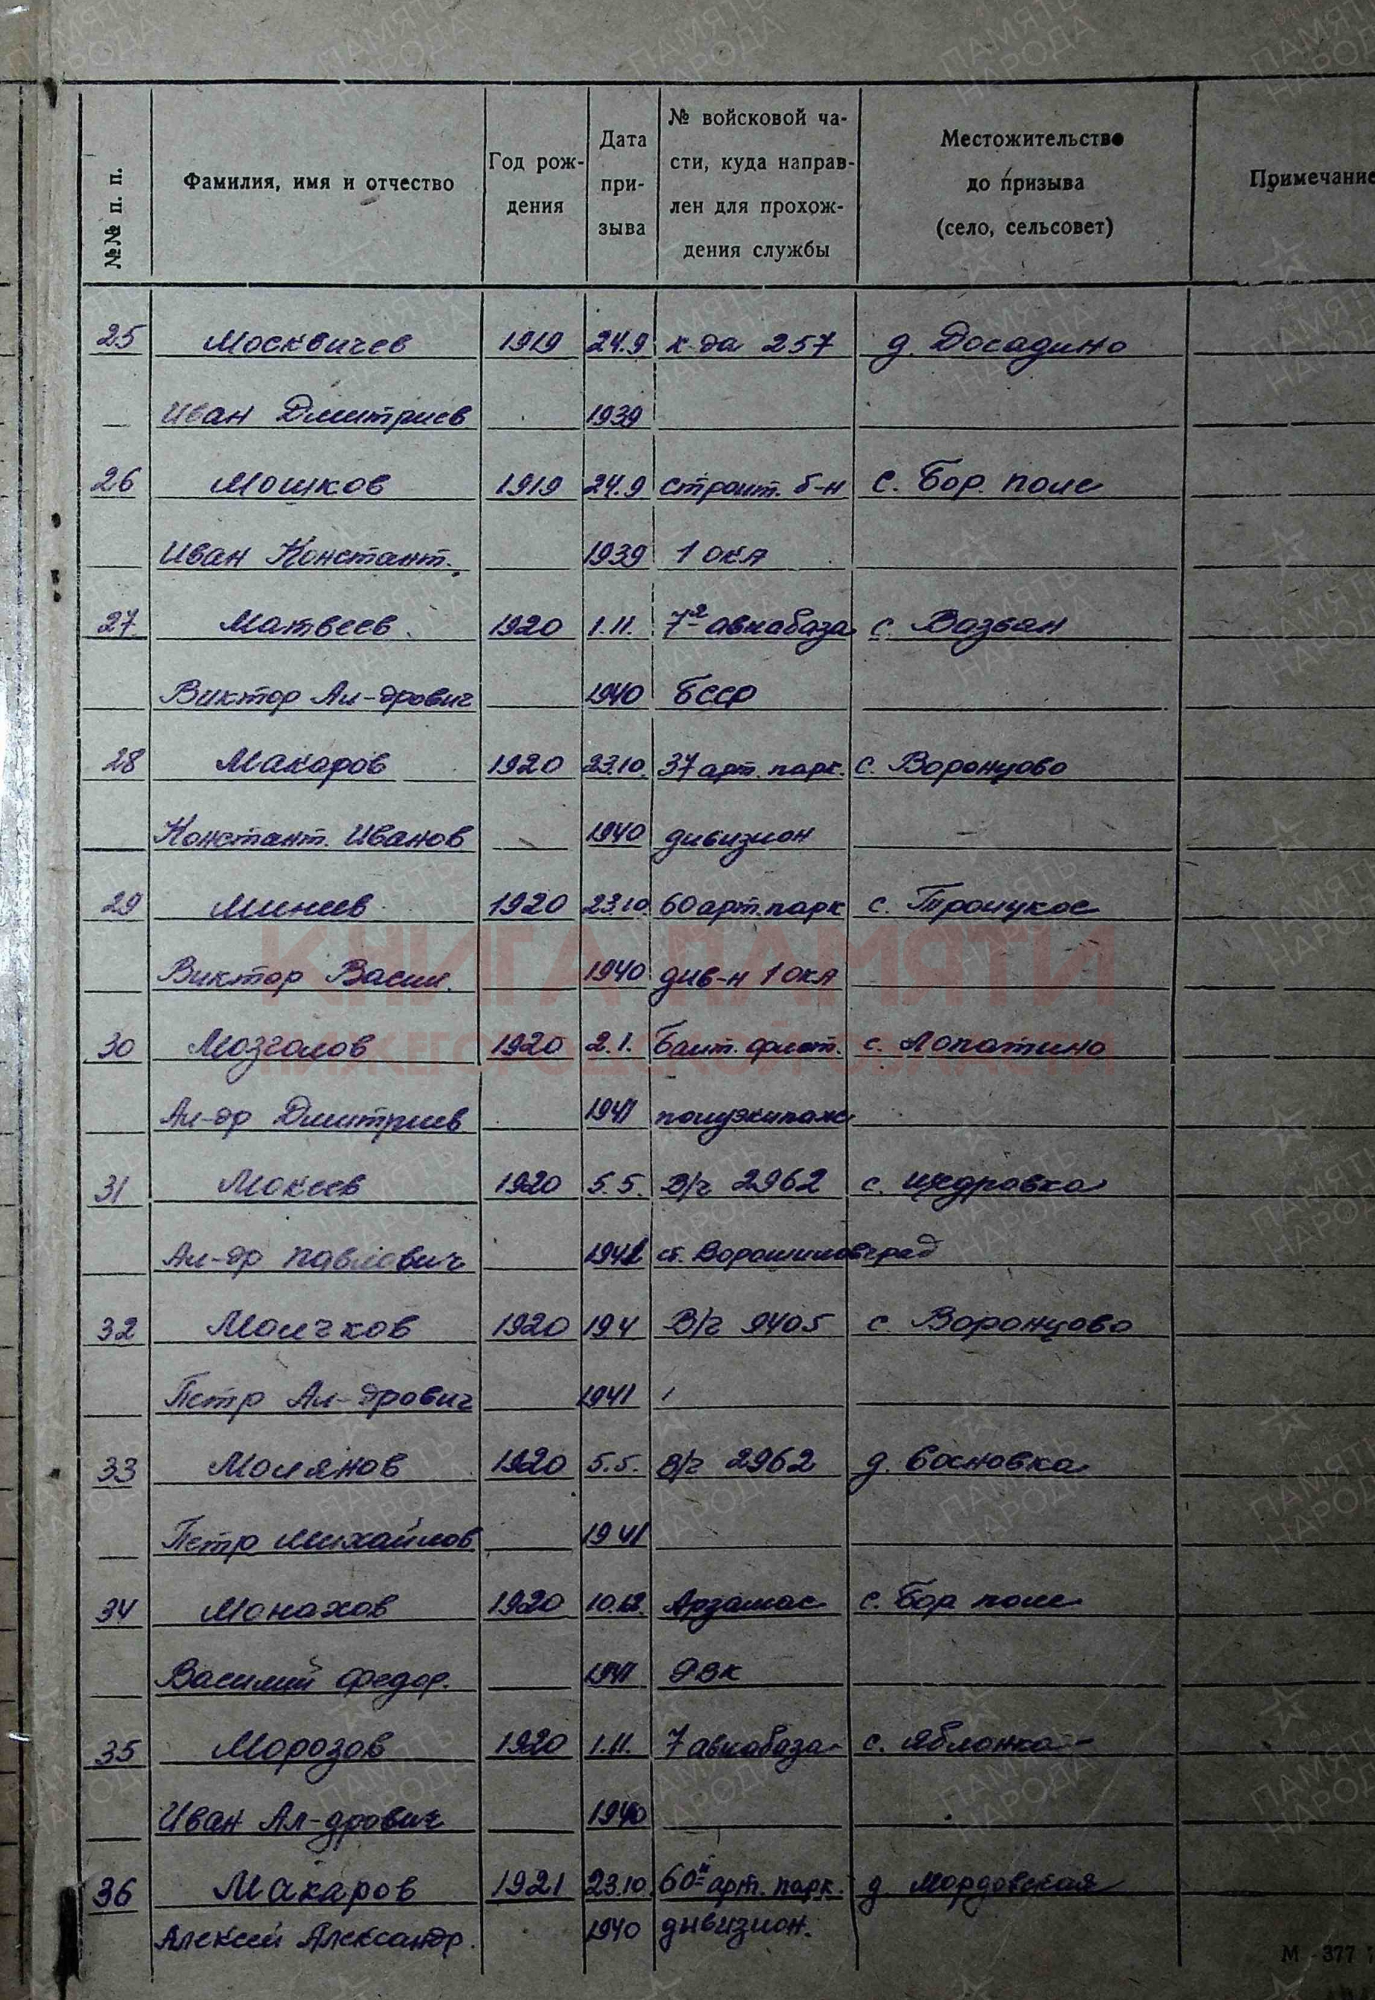 №№ п. п.
Фамилия, имя и отчество
Год рож-
дения
Дата
при-
зыва
№ войсковой ча-
сти, куда направ-
лен для прохож-
дения службы
Местожительство
до призыва
(село, сельсовет)
Примечание
25 Москвичев 1919 24.9 к-да 257 д. Досадино
Иван Дмитриев 1939
26 Мошков 1919 24.9 строит. б-н с. Бор. поле
Иван Констант. 1939 1 ОКА
27 Матвеев 1920 1.11. 7 авиабаза с. Вазьян
Виктор Ал-дрович 1940 БССР
28 Макаров 1920 23.10. 37 арт. парк. с. Воронцово
Констант. Иванов 1940 дивизион
29 Минеев 1920 23.10. 60 арт. парк с. Троицкое
Виктор Васил. 1940 див-н 1 ОКА
30 Мозголов 1920 2.1. Балт. флот. с. Лопатино
Ал-др Дмитриев 1941 полуэкипаж
31 Мокеев 1920 5.5. В/ч 2962 с. Щедровка
Ал-др Павлович ст. Ворошиловград
32 Молчков 1920 19.4 В/ч 9405 с. Воронцово
Петр Ал-дрович 1941
33 Молянов 1920 5.5. В/ч 2962 д. Сосновка
Петр Михайлов 1941
34 Монахов 1920 10.12. Арзамас с. Бор поле
Василий Федор. 1941
35 Морозов 1920 1.11. 7 авиабаза с. Яблонка
Иван Ал-дрович 1940
36 Макаров 1921 23.10. 60й арт. парк. д. Мордовская
Алексей Александр. 1940 дивизион.
КНИГА ПАМЯТИ
НИЖЕГОРОДСКОЙ ОБЛАСТИ
ПАМЯТЬ
НАРОДА
М - 377